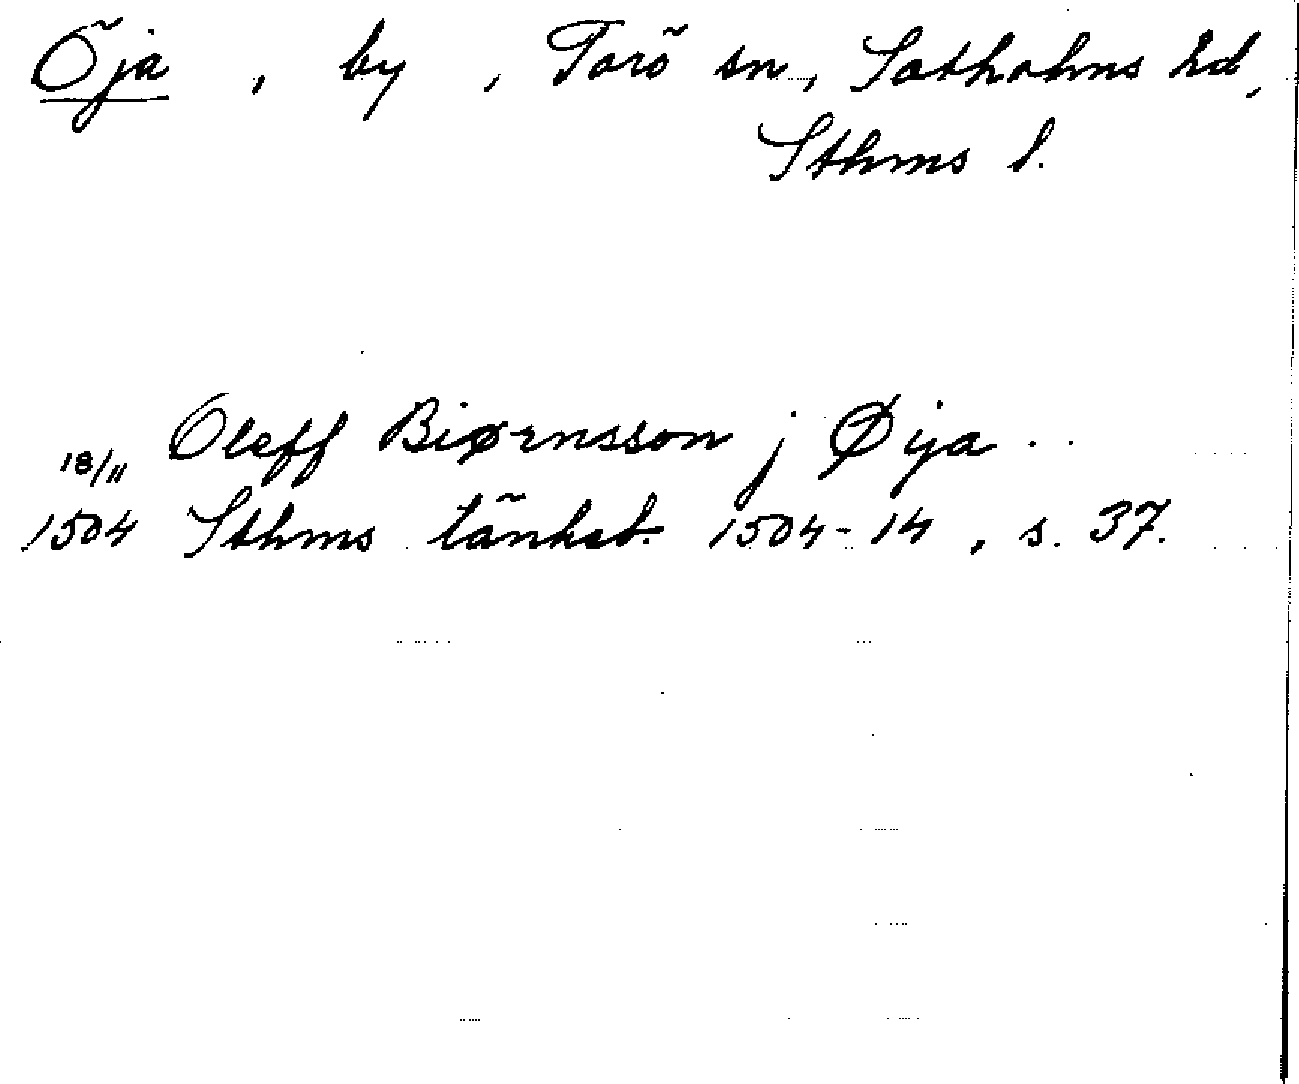 Öja , by , Torö sn, Sotholms hd,
Sthms l.
Oleff Biørnsson j Øija . .
18/11
1504 Sthms tänkeb. 1504-14 , s. 37.